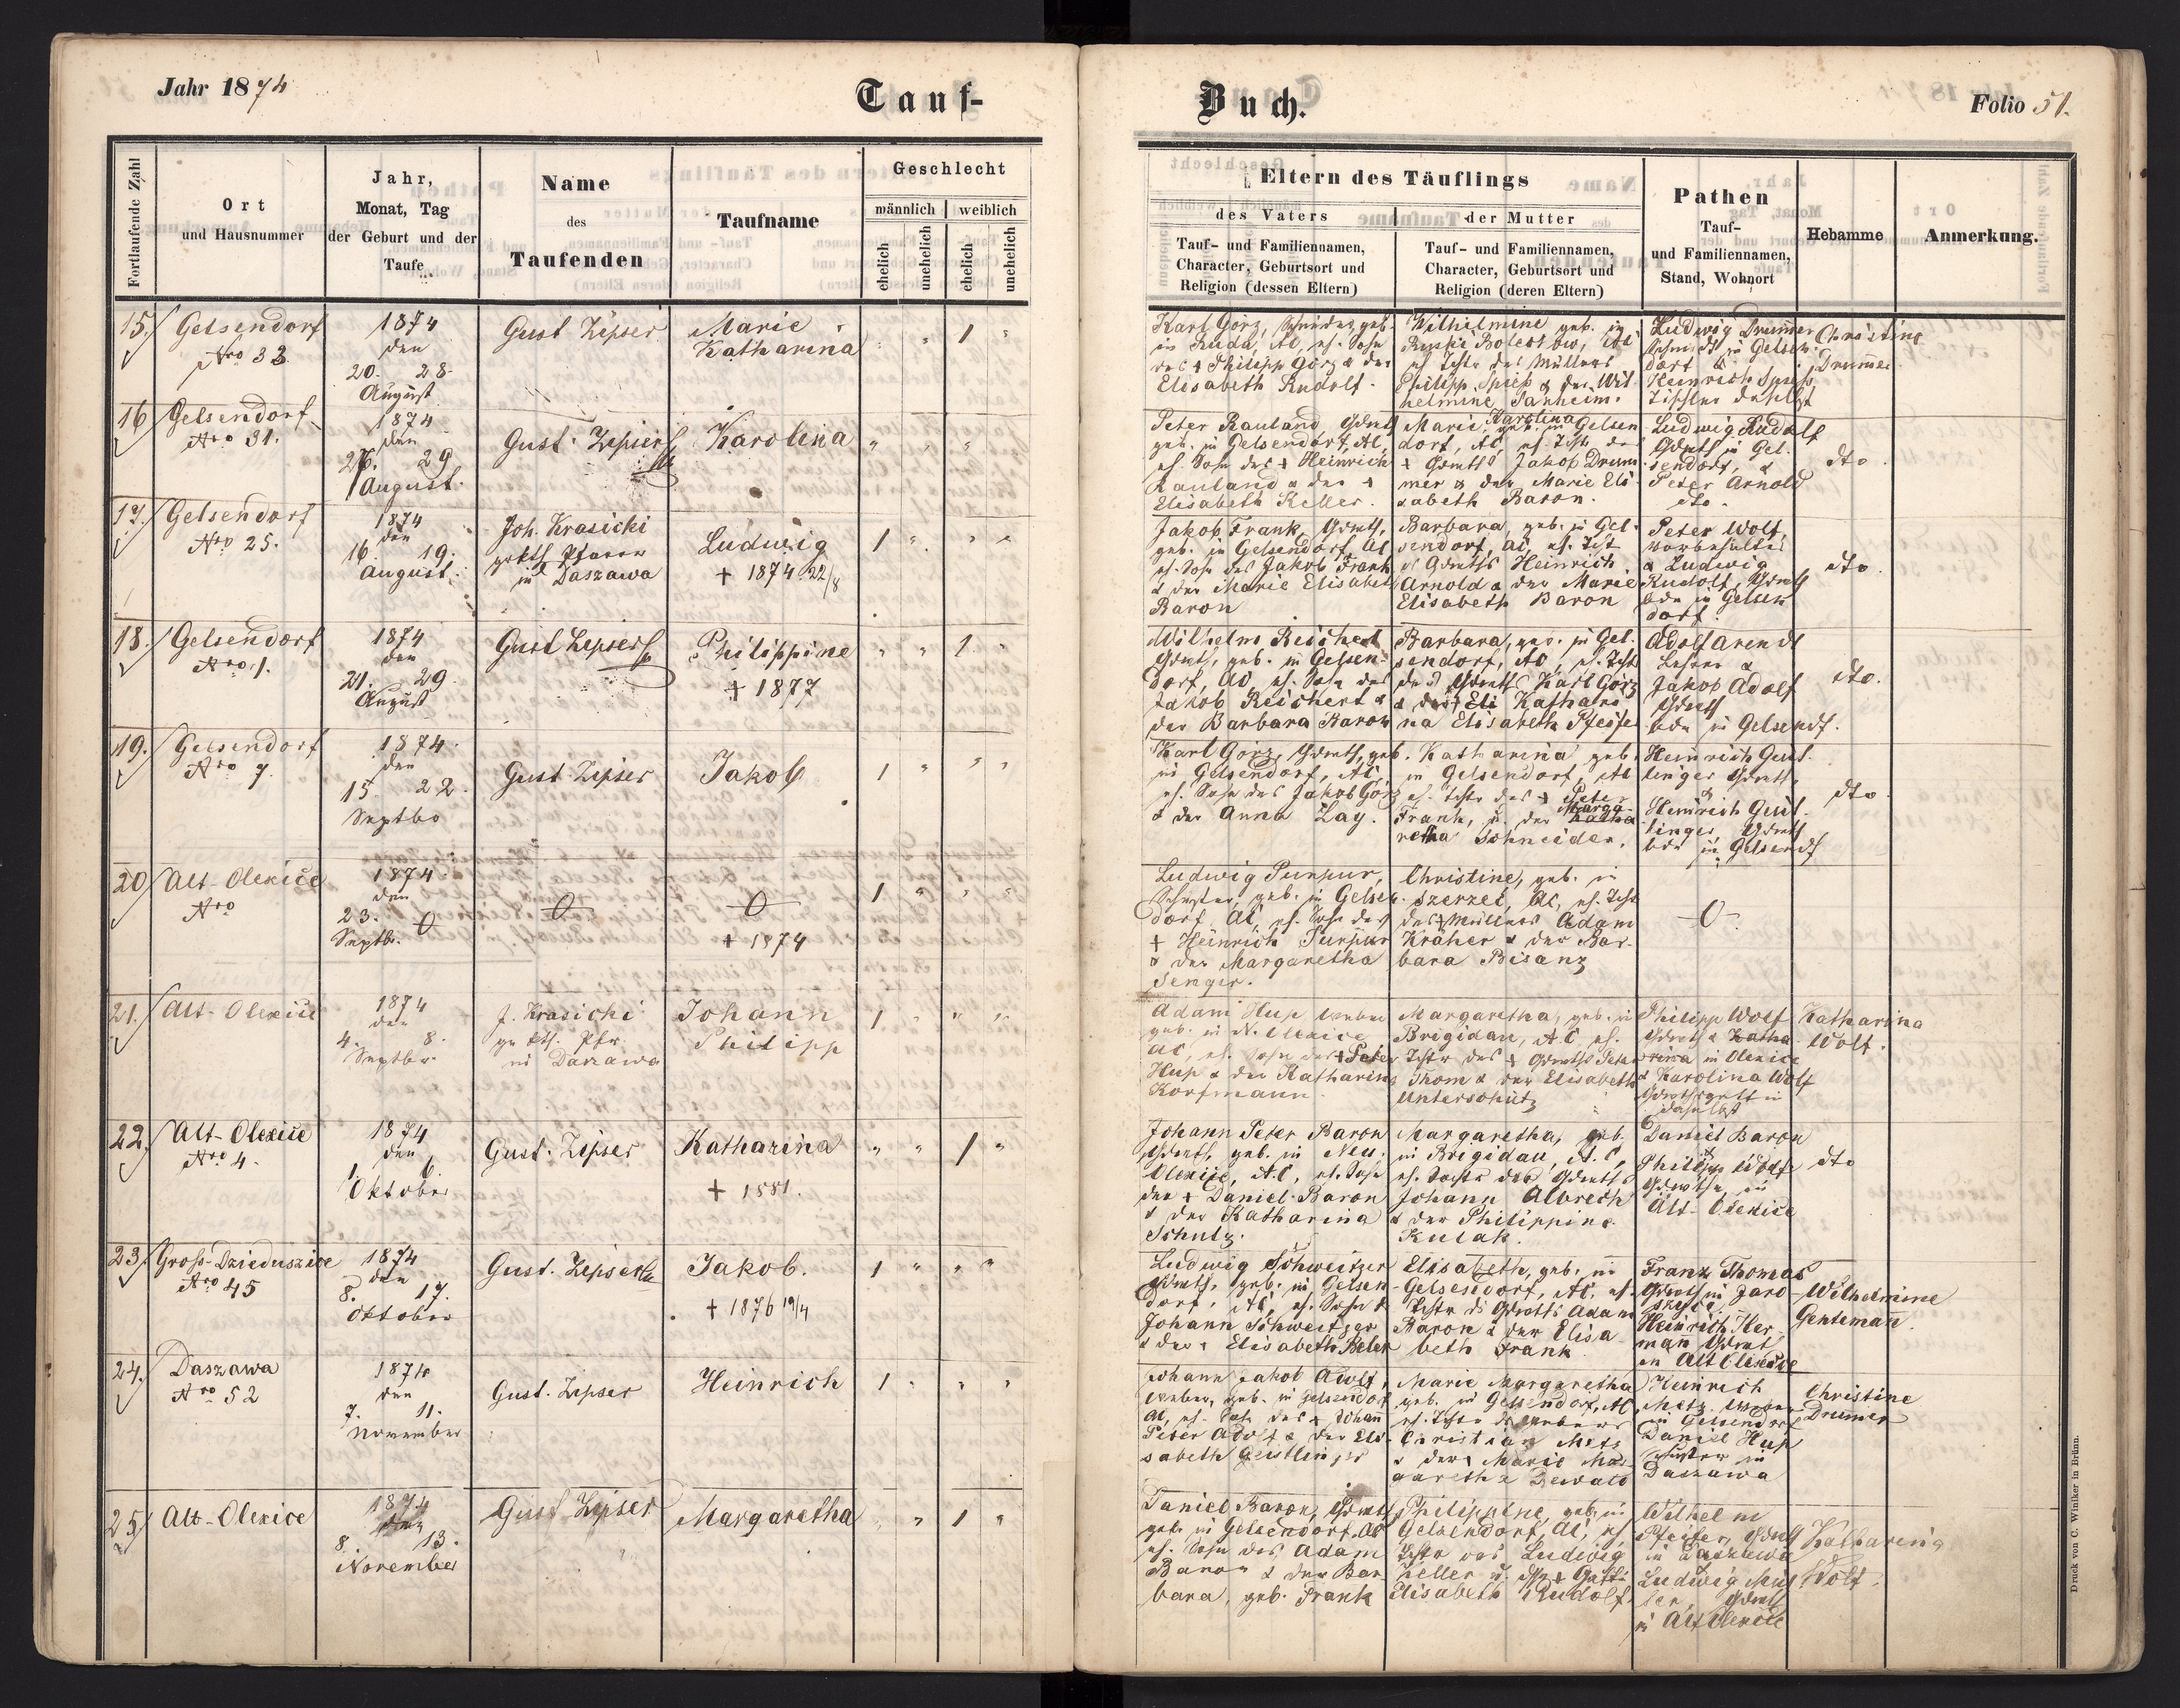 Jahr 1874
Tauf-
Buch.
Folio 51.
Fortlaufende Zahl
Ort
und Hausnummer
Jahr,
Monat, Tag
der Geburt und der
Taufe
Name
des
Taufenden
Taufname
Geschlecht
männlich
weiblich
ehelich
unehelich
ehelich
unehelich
Eltern des Täuflings
des Vaters
Tauf- und Familiennamen,
Character, Geburtsort und
Religion (dessen Eltern)
der Mutter
Tauf- und Familiennamen,
Character, Geburtsort und
Religion (deren Eltern)
Pathen
Tauf-
und Familiennamen,
Stand, Wohnort
Hebamme
Anmerkung.
15.
Gelsendorf
Nro 32.
1874
den
20. 28.
August
Gust Zipser
Marie
Katharina
" " 1 "
Karl Görz, geb.
in Ruda, AC, eh. Sohn
des + Philipp Görz & der
Elisabeth Rudolf.
Wilhelmine geb. in
Ruski Boleslow, AC
eh Toch des Müllers
Philipp Spieß & der Wil-
helmine Sanheim.
Ludwig Drummer
in Gelsen-
dorf &
Heinrich Spieß
Tischler daselbst
Christine
Drummer
16
Gelsendorf
Nro 31.
1874
den
26. 29
August.
Gust. Zipser
Karolina
" " "
Peter Rauland, Grdw
geb. in Gelsendorf, AC,
eh. Sohn des + Heinrich
Rauland & der +
Elisabeth Keller.
Marie Karolina geb. in Gelsen
dorf, AC, eh. Toch. des
+ Grdwths Jakob Drum-
mer & der Marie Eli-
sabeth Baron.
Ludwig Rudolf
Grdwth in Gel-
sendorf, &
Peter Arnold
dto.
dto.
17.
Gelsendorf
Nro 25.
1874
den
16. 19.
August.
Joh. Krasicki
gr kth Pfarrer
in Daszawa
Ludwig
+ 1874 22/8
1 " " "
Jakob Frank, Grdwth,
geb. in Gelsendorf AC
eh. Sohn des Jakob Frank
& der Marie Elisabet
Baron
Barbara, geb. in Gel-
sendorf, AC, eh. Toch
d Grdwths Heinrich
Arnold & der Marie
Elisabeth Baron
Peter Wolf,
& Ludwig
Rudolf, Grdwth
bde in Gelsen
dorf.
dto.
18.
Gelsendorf
Nro 1.
1874
den
21. 29.
August
Gust Zipser
Philippine
+ 1877
" " 1. "
Wilhelm Reichert
Grdwth, geb. in Gelsen-
dorf, AC, eh. Sohn des
Jakob Reichert &
der Barbara Baron
Barbara, geb. in Gel-
sendorf, AC, eh. Toch
des Grdwths Karl Görz
& der + Eli Kathari
na Elisabeth Pfeife
Adolf Arendt
Lehrer &
Jakob Adolf
Grdwth
bde in Gelsendf.
dto.
19.
Gelsendorf
Nro 7.
1874.
den
15. 22.
Septbo
Gust Zipser
Jakob
1 " " "
Karl Görz, Grdwth, geb.
in Gelsendorf, AC,
eh. Sohn des Jakob Görz
& der Anna Lay.
Katharina geb.
in Gelsendorf, AC
eh. Toch des + Peter
Frank, u. der Marga-
Katha
retha Schneider.
Heinrich Geist-
linger Grdwth,
&
Heinrich Geist-
linger, Grdwth
bde in Gelsendf
dto.
20
Alt-Olexice
Nro
1874.
den
23. 0
Septb.
0
0
+ 1874
1 " " "
Ludwig Purpur,
Schuster, geb. in Gelsen-
dorf, AC, eh. Sohn des
+ Heinrich Purpur
& der Margaretha
Senger.
Christine, geb. in
Szerzec, AC, eh. Toch
des + Müllers Adam
Kräher & der Bar-
bara Bisanz
0
21.
Alt-Olexice
1874
den
4. 8.
Septber
J. Krasicki
gr kth. Pfr
in Daszawa
Johann
Philipp
1 " " "
Adam Hup Weber
geb. in N. Olexice
AC, eh. Sohn des + Peter
Hup & der Katharina
Korfmann.
Margaretha, geb. in
Brigidau, AC eh.
Tochter des + Grdwths Peter
Thom & der Elisabeth
Unterschütz
Philipp Wolf
Grdwth & Katha-
rina in Olexice
& Karolina Wolf
daselbst
Katharina
Wolf.
22.
Alt-Olexice
Nro 4.
1874
den
1. 6.
Oktober
Gust. Zipser
Katharina
+ 1881.
" " 1 "
Johann Peter Baron
Grdwth, geb. in Neu-
Olexice, AC, eh. Sohn
des + Daniel Baron
& der Katharina
Schutz.
Margaretha, geb.
in Brigidau, A.C,
eh. Tochter des Grdwths
Johann Albrecht
& der Philippine
Kulak.
Daniel Baron
&
Philipp Wolf
Grdwthe in
Alt-Olexice
dto
23.
Groß-Dzieduszice
Nro 45
1874
den
8. 17.
Oktober
Gust. Zipser
Jakob.
+ 1876 19/4
1 " " "
Ludwig Schweitzer
Grdwth, geb. in Gelsen-
dorf, AC, eh. Sohn d
Johann Schweitzer
& der + Elisabeth Beler
Elisabeth, geb. in
Gelsendorf, AC, eh.
Tochter ds Grdwths Adam
Baron & der Elisa
beth Frank.
Franz Thomas
Grdwth in Jaro-
szyce
Heinrich Her-
mann Grdwt
in Alt Olexice
Wilhelmine
Gentemann.
24.
Daszawa
Nro 52
1874
den
7. 11.
November
Gust. Zipser
Heinrich
1 " " "
Johann Jakob Adolf,
Weber, geb. in Gelsendorf
AC, eh. Sohn des + Johann
Peter Adolf & der Eli-
sabeth Geistlinger
Marie Margaretha
geb. in Gelsendorf, AC
eh. Tochter ds Webers
Christian Metz
& der + Marie Mar-
garetha Dewald
Heinrich
Metz. Weber
in Gelsendorf
Daniel Hup
in
Daszawa
Christine
Drumer
25.
Alt-Olexice
1874
den
8. 13.
November
Gust Zipser
Margaretha
" " 1 "
Daniel Baron, Grdwth
geb. in Gelsendorf, AC
eh. Sohn des Adam
Baron & der Bar
bara, geb. Frank
Philippine, geb. in
Gelsendorf, AC, eh
Tochter des Ludwig
Keller u. der + Gatti
Elisabeth Rudolf.
Wilhelm
Pfeifer, Grdwth
in Daszawa
Ludwig Mül
ler, Grdwth
in Alt Olexice
Katharina
Wolf.
Druck von C. Winiker in Brünn.